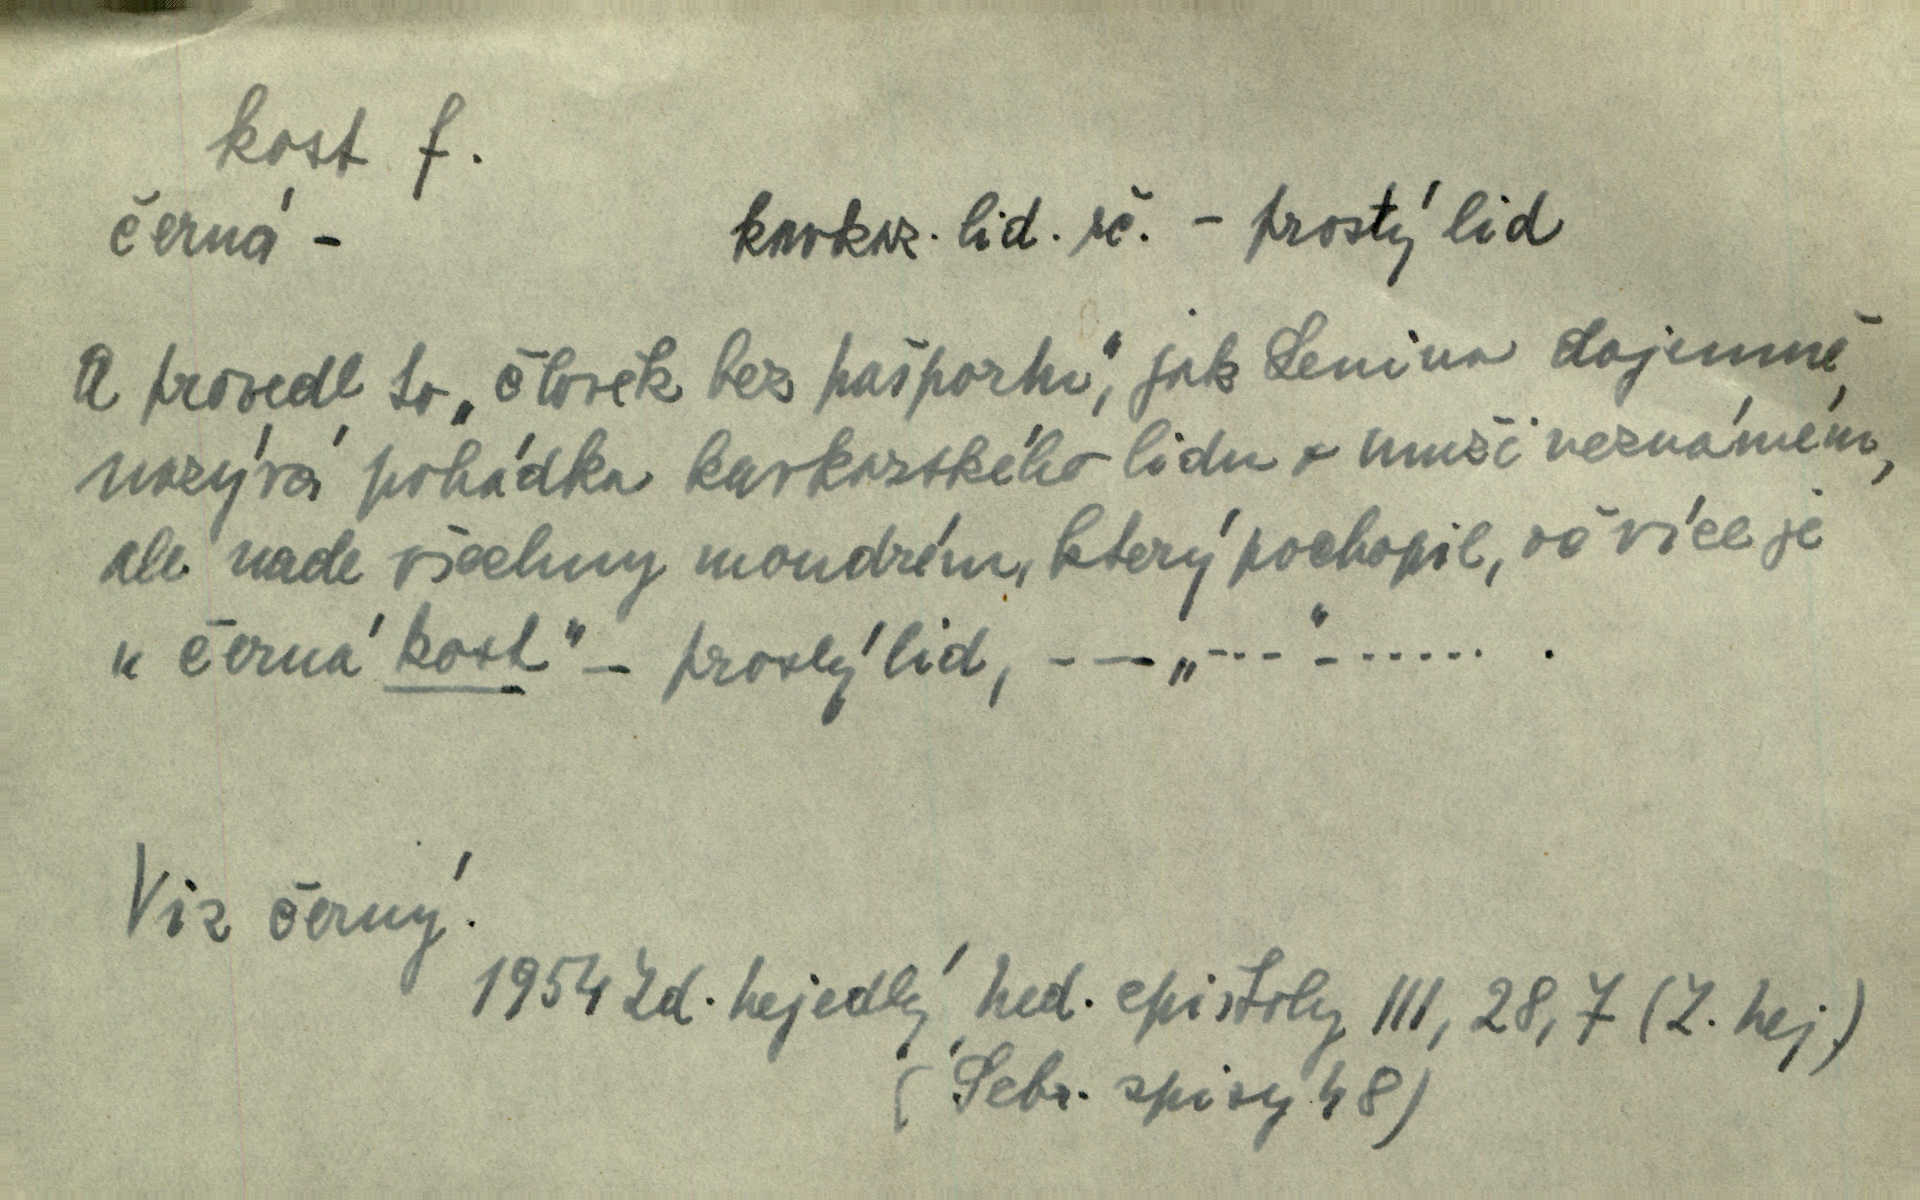 kost f.
černá - kavkaz. lid. rč. - prostý lid
A provedl to „člověk bez pašportu“, jak Lenina dojemně
nazývá pohádka kavkazského lidu o muži neznámém,
ale nade všechny moudrém, který pochopil, oč více je
„černá kost“ - prostý lid, - - - „ - - - “ - - - - - - .
Viz černý.
1954 Zd. Nejedlý, Ned. epištoly III, 28, 7 (Z. Nej.)
(Sebr. spisy 48)